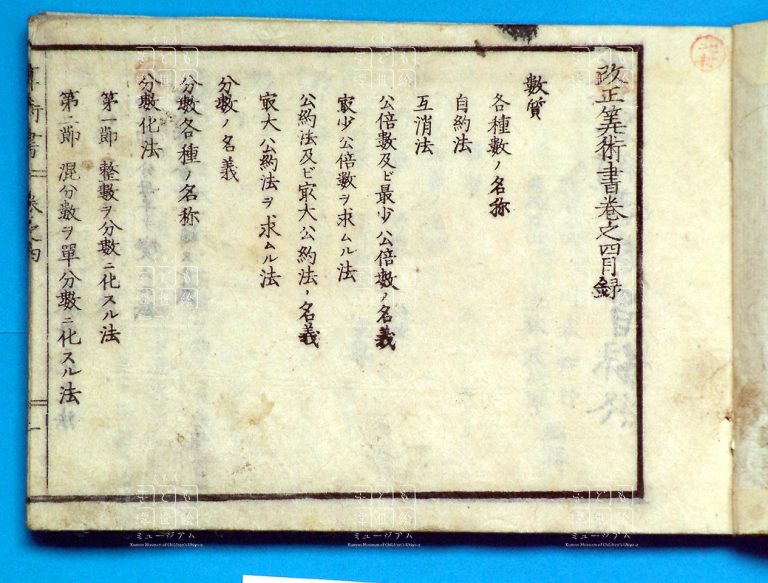 改正筭術書卷之四目録
數質
各種數ノ名称
自約法
互消法
公倍數及ビ最少公倍數ノ名義
㝡少公倍數ヲ求ムル法
公約法及ビ㝡大公約法ノ名義
㝡大公約法ヲ求ムル法
分數ノ名義
分數各種ノ名称
分數化法
第一節 整數ヲ分數ニ化スル法
第二節 混分數ヲ單分數ニ化スル法
術書 卷之四
くもん子ども浮世絵ミュージアム
Kumon Museum of Children's Ukiyo-e